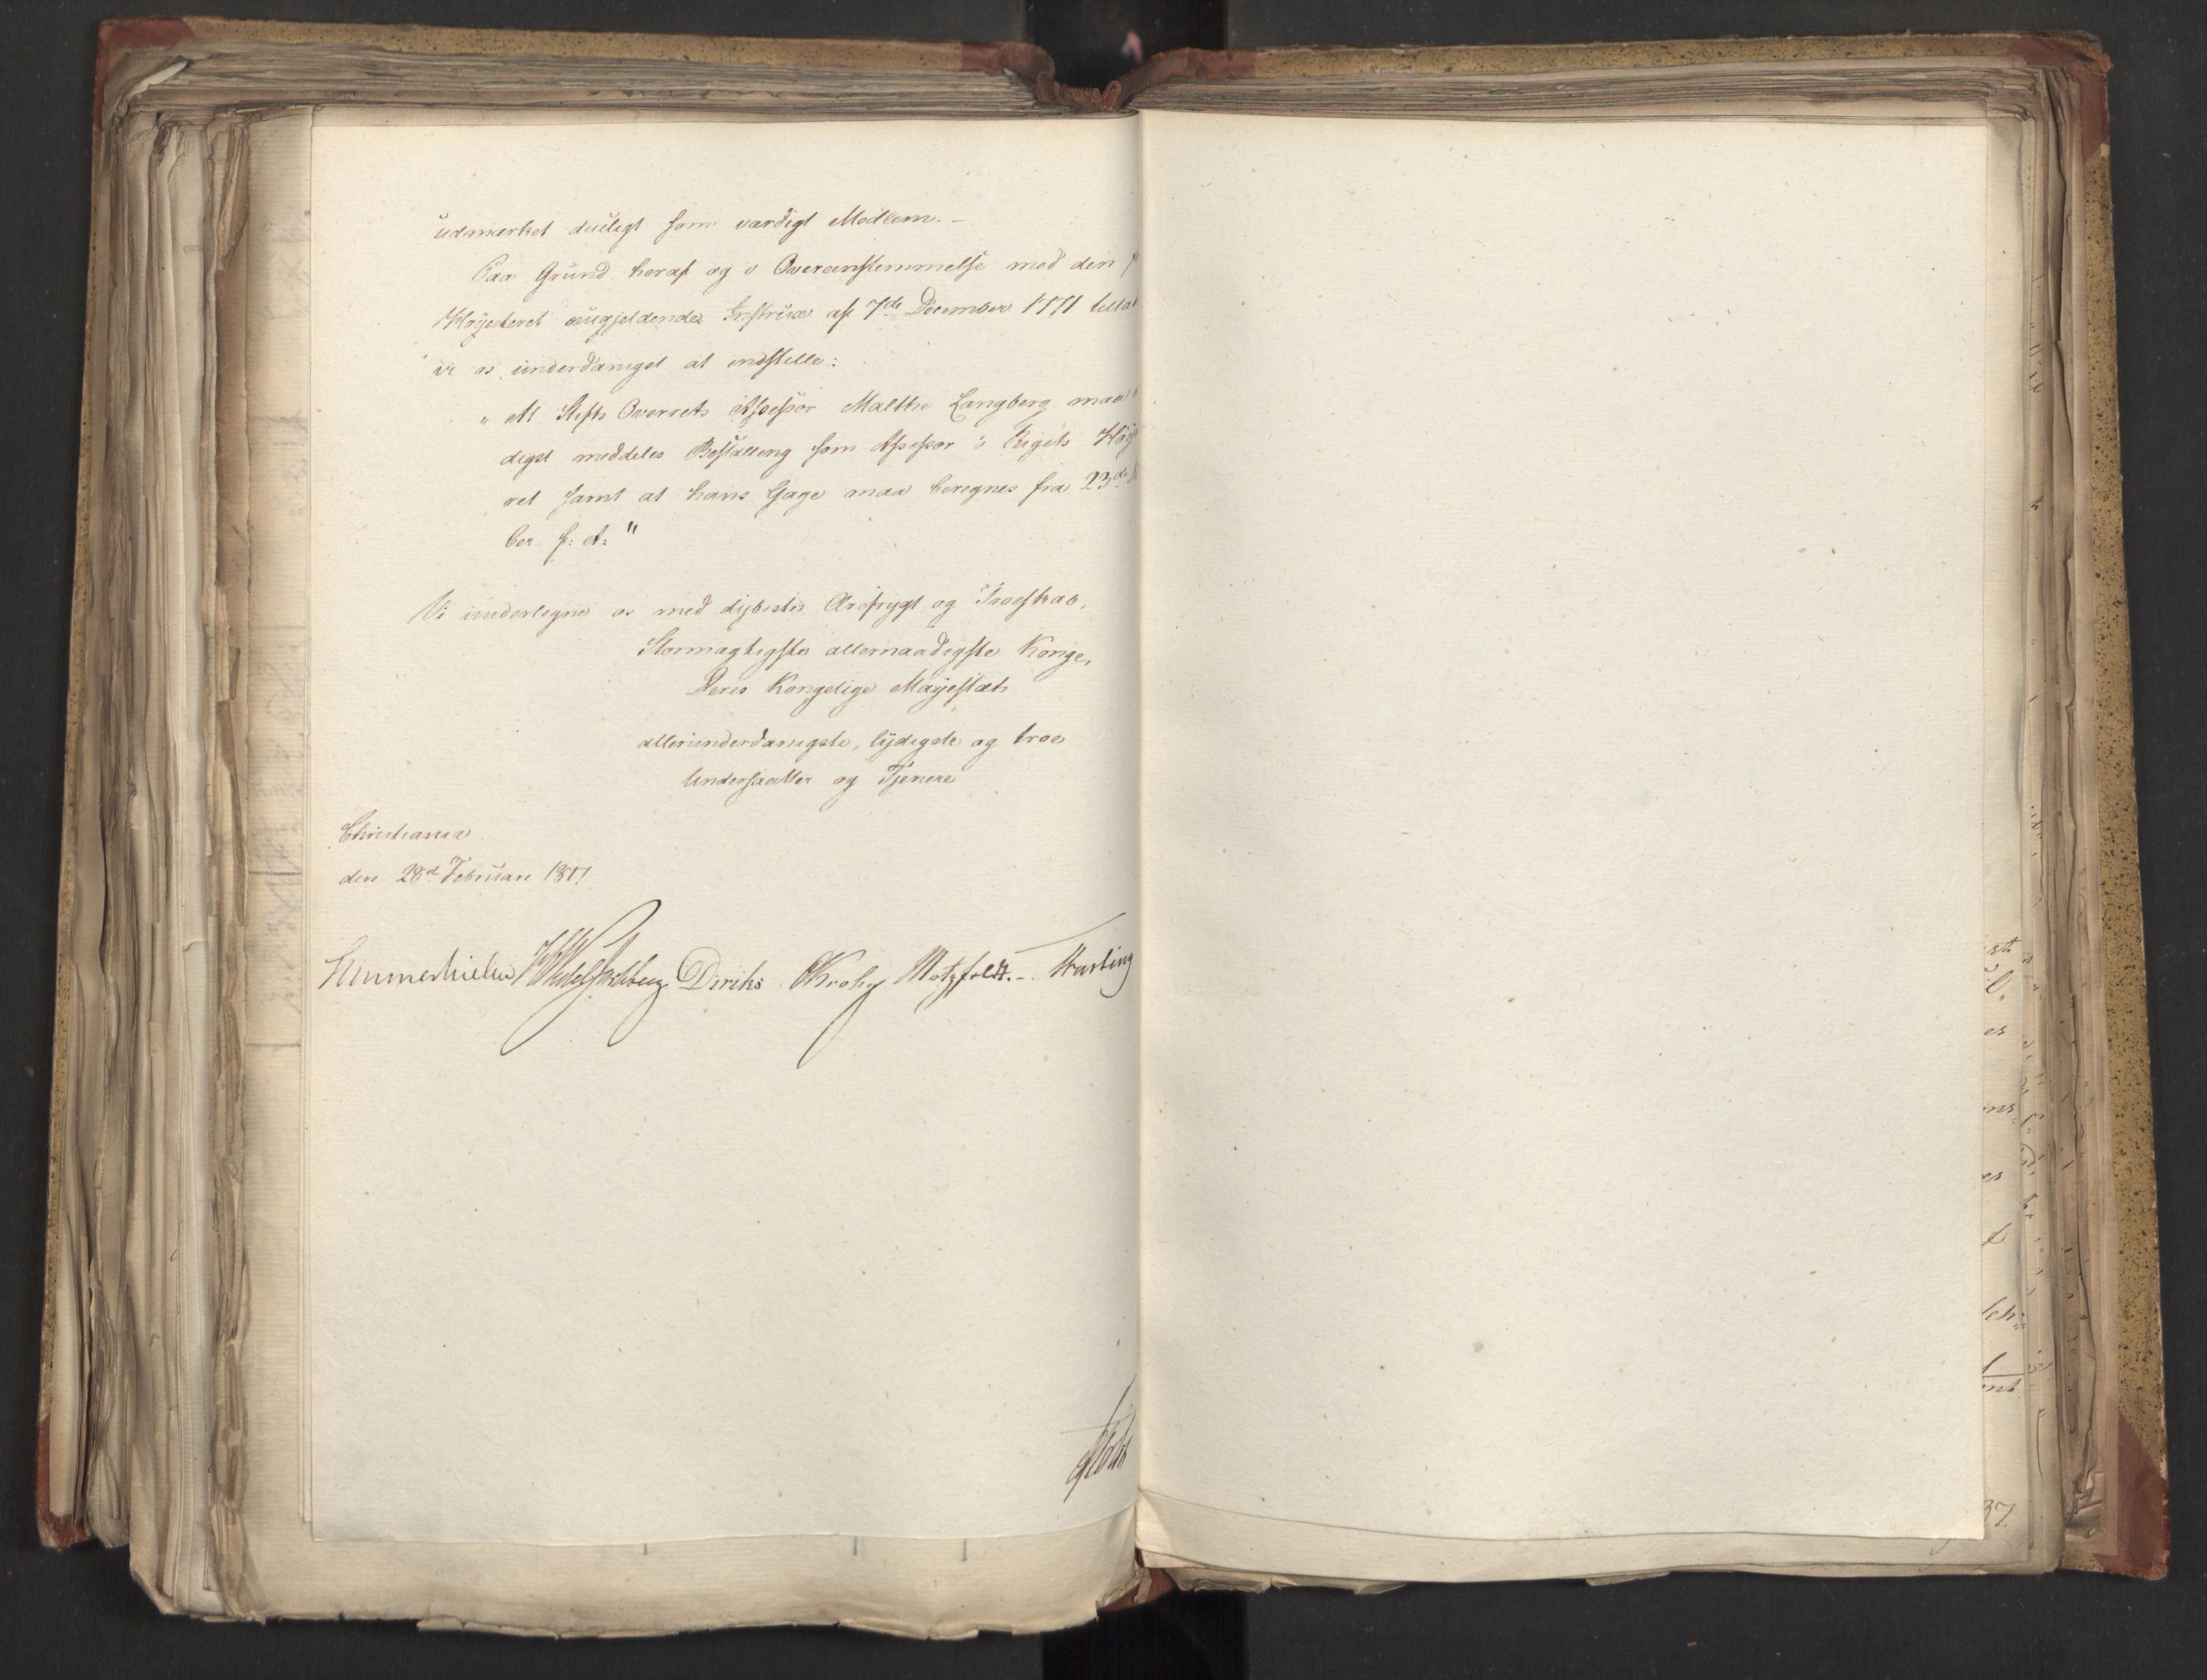 udmærket dueligt som værdigt Medlem. —
Paa Grund heraf og i Overeensstemmelse med den
Høyesteret angjeldende Instrux af 7de December 1771 tilla
vi os underdanigst at indstille:
„At Stifts Overrets Assessor Malthe Langberg maa
digst meddeles Bestalling som Assessor i Rigets Høy
ret samt at hans Gage maa beregnes fra 23de
ber f: A: "
Vi undertegne os med dybeste Ærefrygt og Troeskab,
Stormægtigste allernaadigste Konge,
Deres Kongelige Majestæts
allerunderdanigste, lydigste og troe
Undersaatter og Tjenere
Christiania
den 28de Februari 1817
Sommerhielm Wedel Jarlsberg Diriks CKrohg Motzfeldt. — Hasting
st
es
ns
es
37.